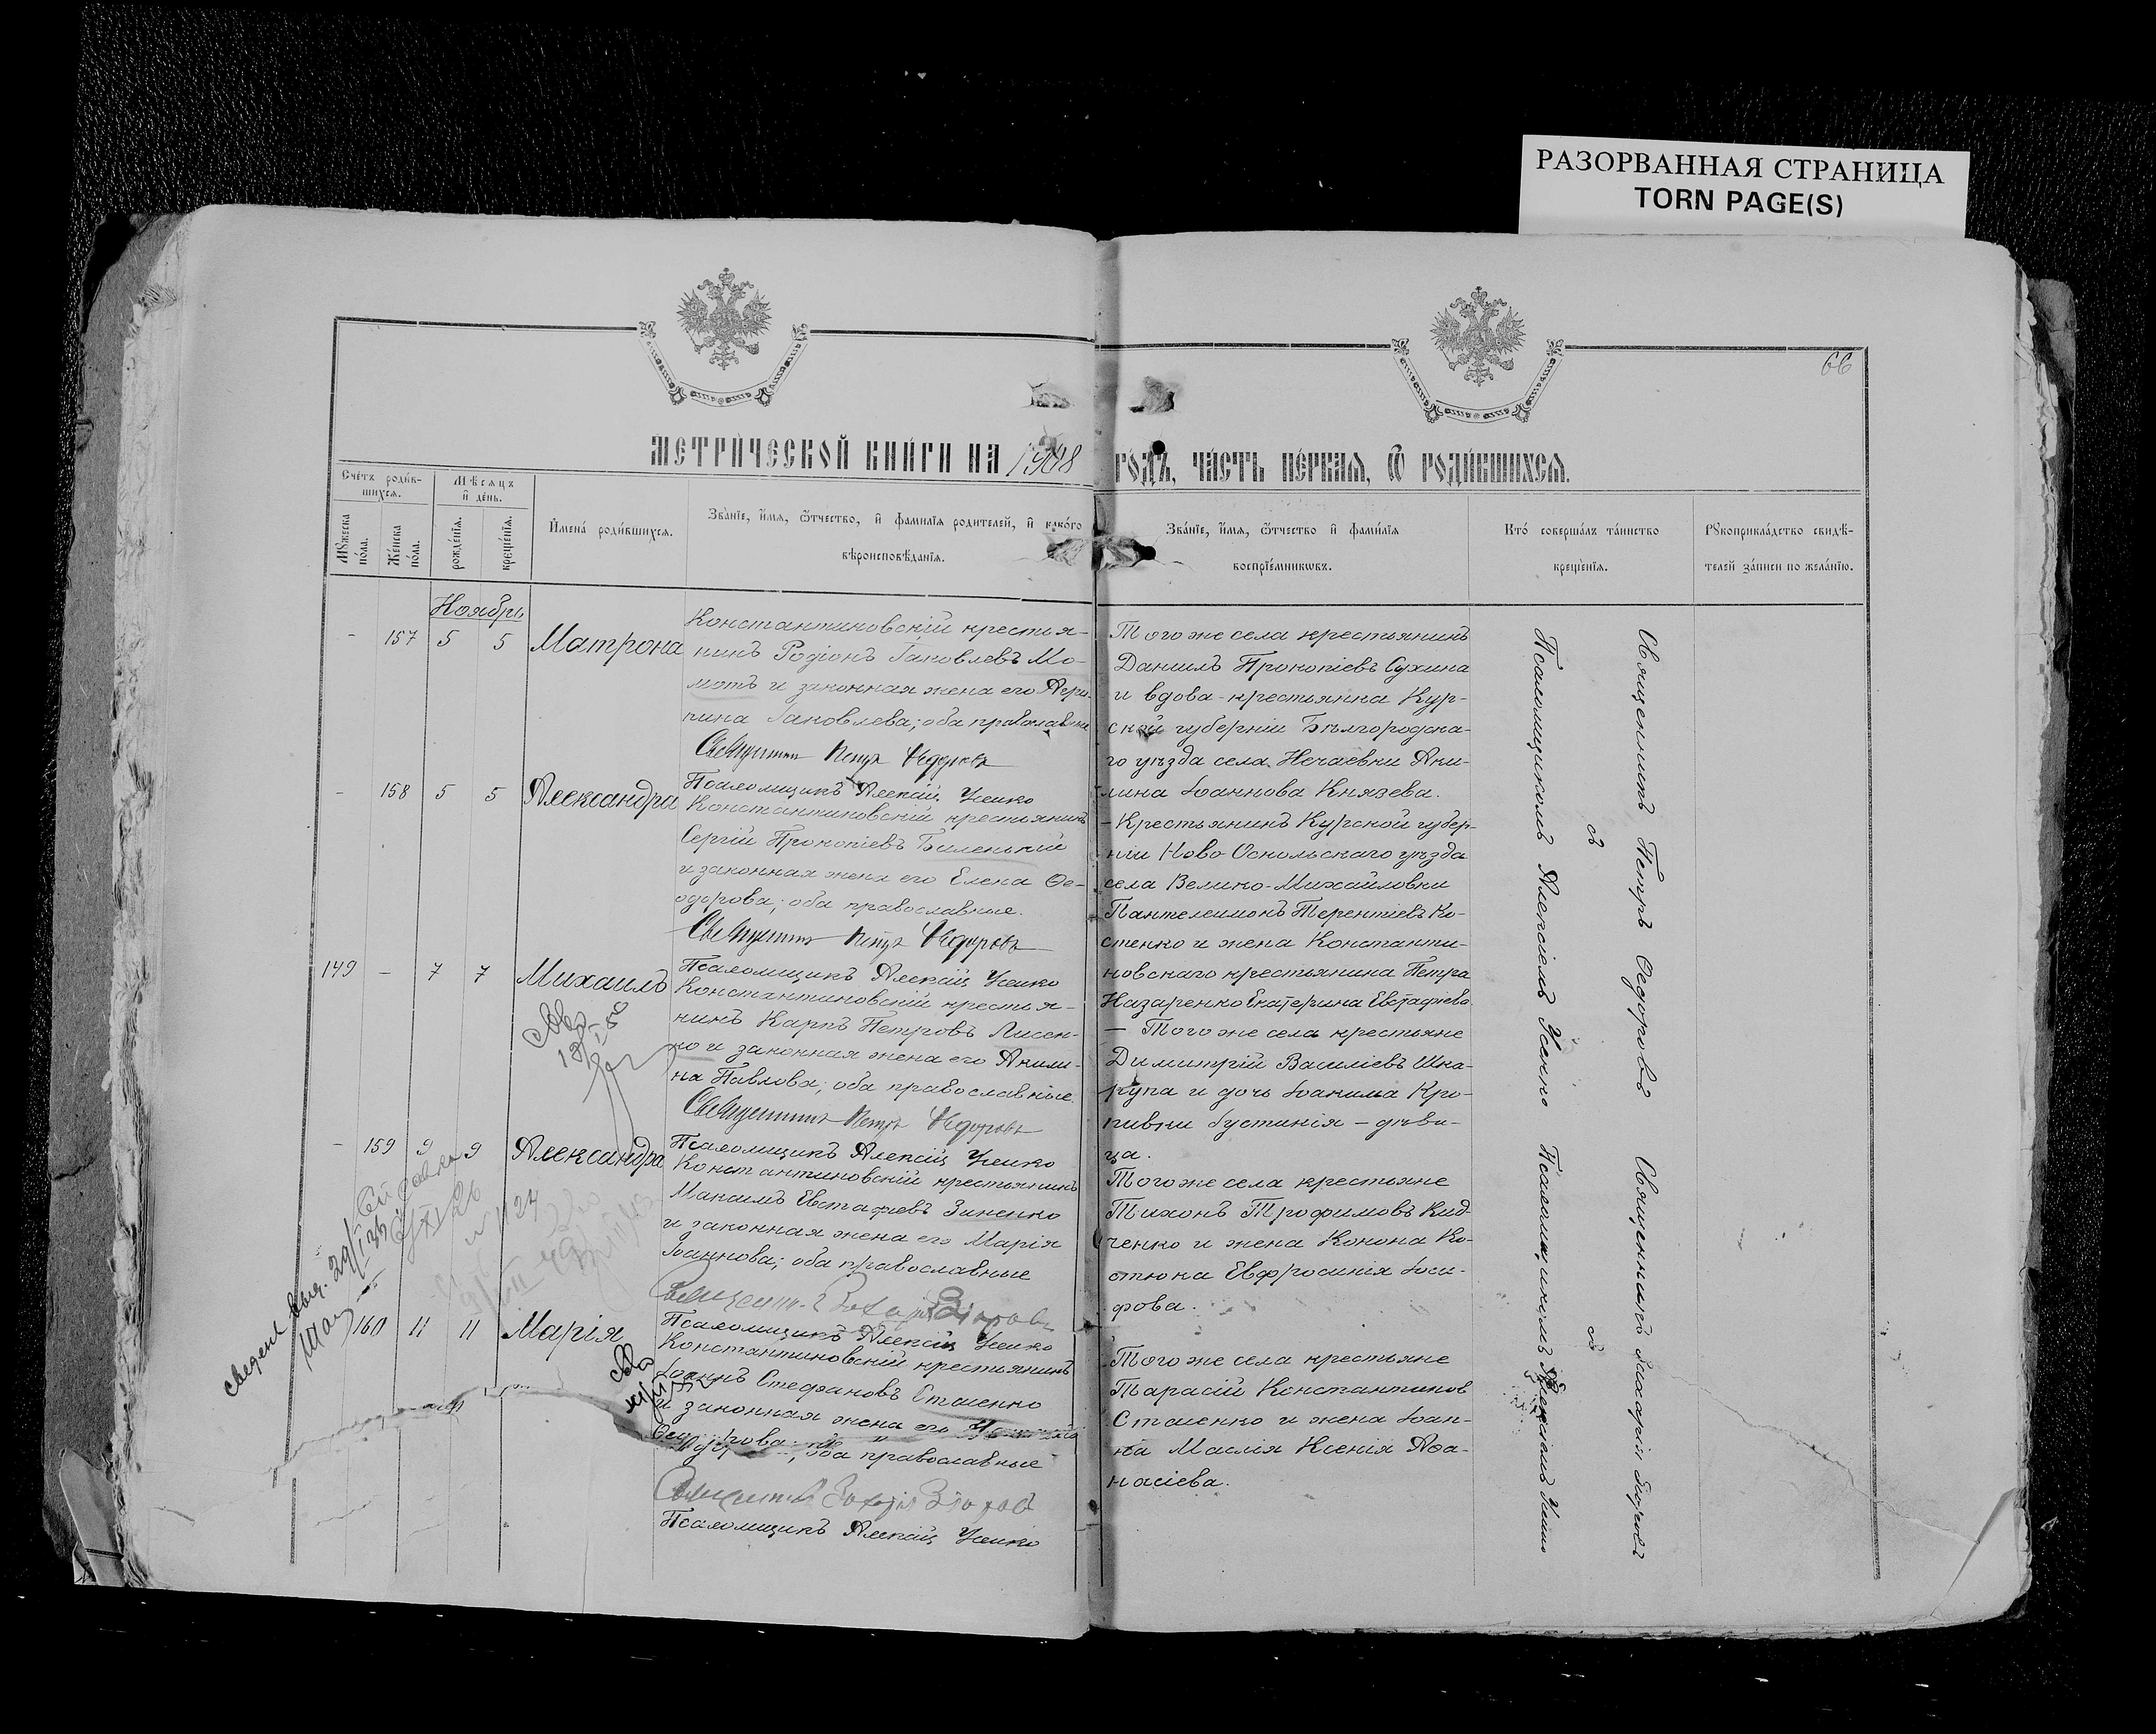 РАЗОРВАННАЯ СТРАНИЦА
TORN PAGE(S)
66
МЕТРИЧЕСКОЙ КНИГИ НА 1908
ГОДЪ, ЧАСТЬ ПЕРВАЯ, Ѿ РОДИВШИХСЯ.
Счетъ родив-
шихся.
Мѣсяцъ
и день.
Мꙋжеска
пола.
Женска
пола.
рожденїя.
крещенїя.
Имена родившихся.
Званїе, имя, ѿтчество, и фамилїя родителей, и какого
вѣроисповѣданїя.
Званїе, имя, ѿтчество и фамилїя
воспрїемникѡвъ.
Кто совершалъ таинство
крещенїя.
Рꙋкоприкладство свидѣ-
телей записи по желанїю.
Ноябрь
- 157 5 5 Матрона
Константиновскій крестья-
нинъ Родіонъ Іаковлевъ Мо-
мотъ и законная жена его Агри-
пина Іаковлева; оба православные
Священникъ Петръ Ѳедоровъ
Псаломщикъ Алексій Усенко
Того же села крестьянинъ
Даніилъ Прокопіевъ Сухина
и вдова-крестьянка Кур-
ской губерніи Бѣлгородска-
го уѣзда села Нечаевки Аки-
лина Іоаннова Князева.
- 158 5 5 Александра
Константиновскій крестьянинъ
Сергій Прокопіевъ Биленькій
и законная жена его Елена Ѳе-
одорова; оба православные.
Священникъ Петръ Ѳедоровъ
Псаломщикъ Алексій Усенко
- Крестьянинъ Курской губер-
ніи Ново-Оскольскаго уѣзда
села Велико-Михайловки
Пантелеимонъ Терентіевъ Ко-
стенко и жена Константи-
новскаго крестьянина Петра
Назаренко Екатерина Евстафіева.
149 - 7 7 Михаилъ
Константиновскій крестья-
нинъ Карпъ Петровъ Лисен-
ко и законная жена его Акили-
на Павлова; оба православные.
Священникъ Петръ Ѳедоровъ
Псаломщикъ Алексій Усенко
— Того же села крестьяне
Димитрій Василіевъ Шка-
рупа и дочь Іоакима Кро-
пивки Іустинія - дѣви-
ца.
- 159 9 9 Александра
Константиновскій крестьянинъ
Максимъ Евстафіевъ Зиненко
и законная жена его Марія
Іоаннова; оба православные
Псаломщикъ Алексій Усенко
Того же села крестьяне
Тихонъ Трофимовъ Кид-
ченко и жена Конона Ко-
стюка Евфросинія Іоси-
фова.
160 11 11 Марія
Константиновскій крестьянинъ
Іоаннъ Стефановъ Стасенко
и законная жена его
оба православные
Псаломщикъ Алексій Усенко
Того же села крестьяне
Тарасій Константиновъ
Стасенко и жена Іоан-
на Маслія Ксенія Аѳа-
насіева.
Священникъ Петръ Ѳедоровъ
съ
Псаломщикомъ Алексіемъ Усенко
Священникъ Захарій
съ
Псаломщикомъ Алексіемъ Усенко